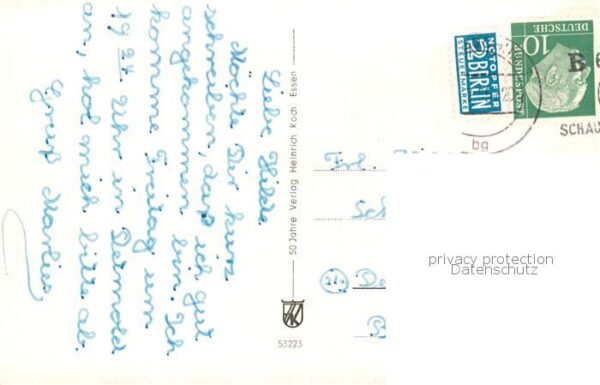 Liebe Hilde
Möchte Dir kurz
schreiben, daß ich gut
angkommen bin. Ich
komme Freitag um
19 24 Uhr in Detmold
an, hol mich bitte ab.
Gruß Marlies
50 Jahre Verlag Heinrich Koch Essen
53223
NOTOPFER
2 BERLIN
STEUERMARKE
DEUTSCHE
BUNDESPOST
10
SCHAU
bg
Frl.
De
privacy protection
Datenschutz